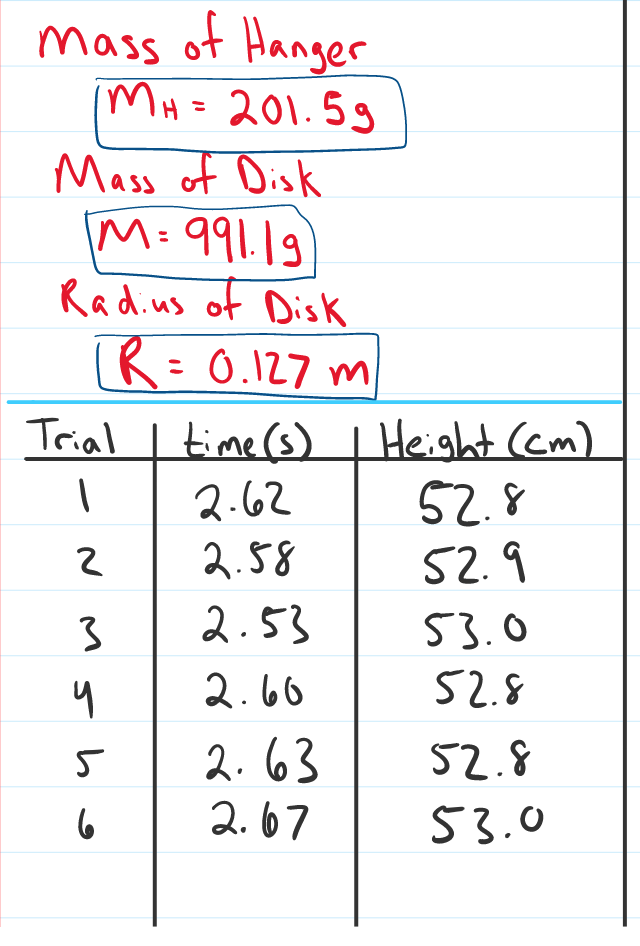 Mass of Hanger
MH = 201.5g
Mass of Disk
M = 991.1g
Radius of Disk
R = 0.127 m
Trial time(s) Height (cm)
1 2.62 52.8
2 2.58 52.9
3 2.53 53.0
4 2.60 52.8
5 2.63 52.8
6 2.67 53.0